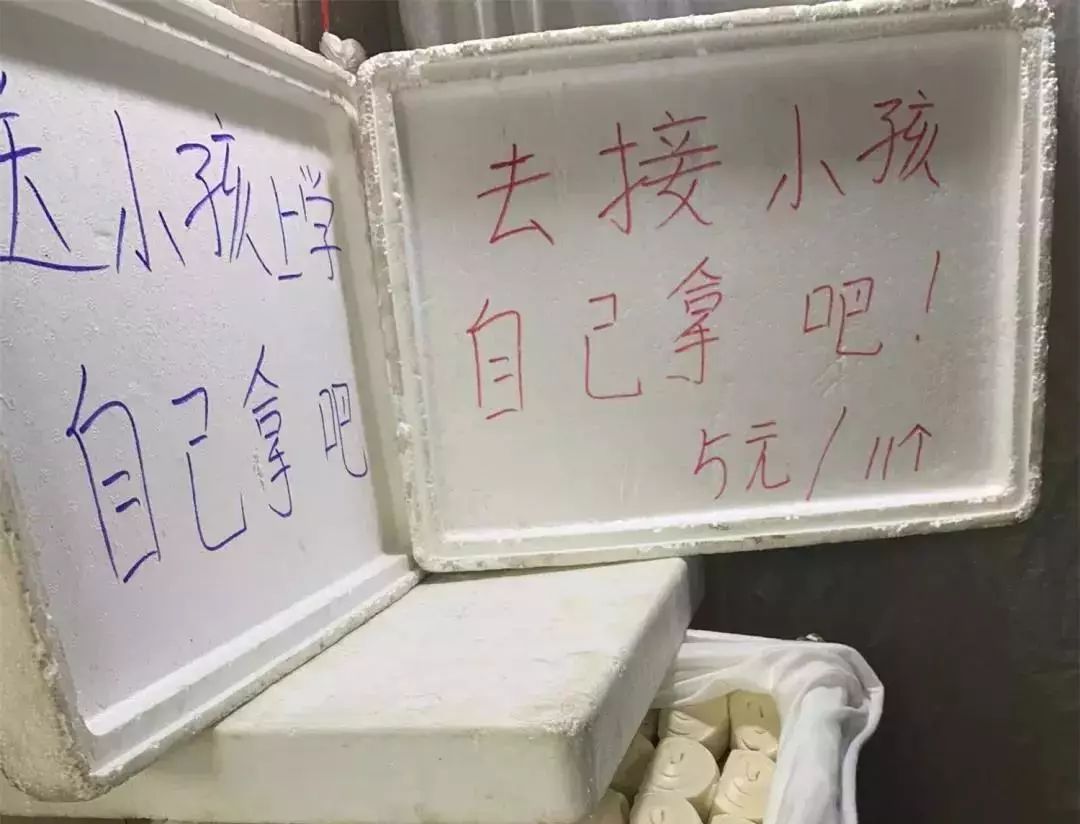 送小孩上学
自己拿吧
去接小孩
自己拿吧！
5元/11个